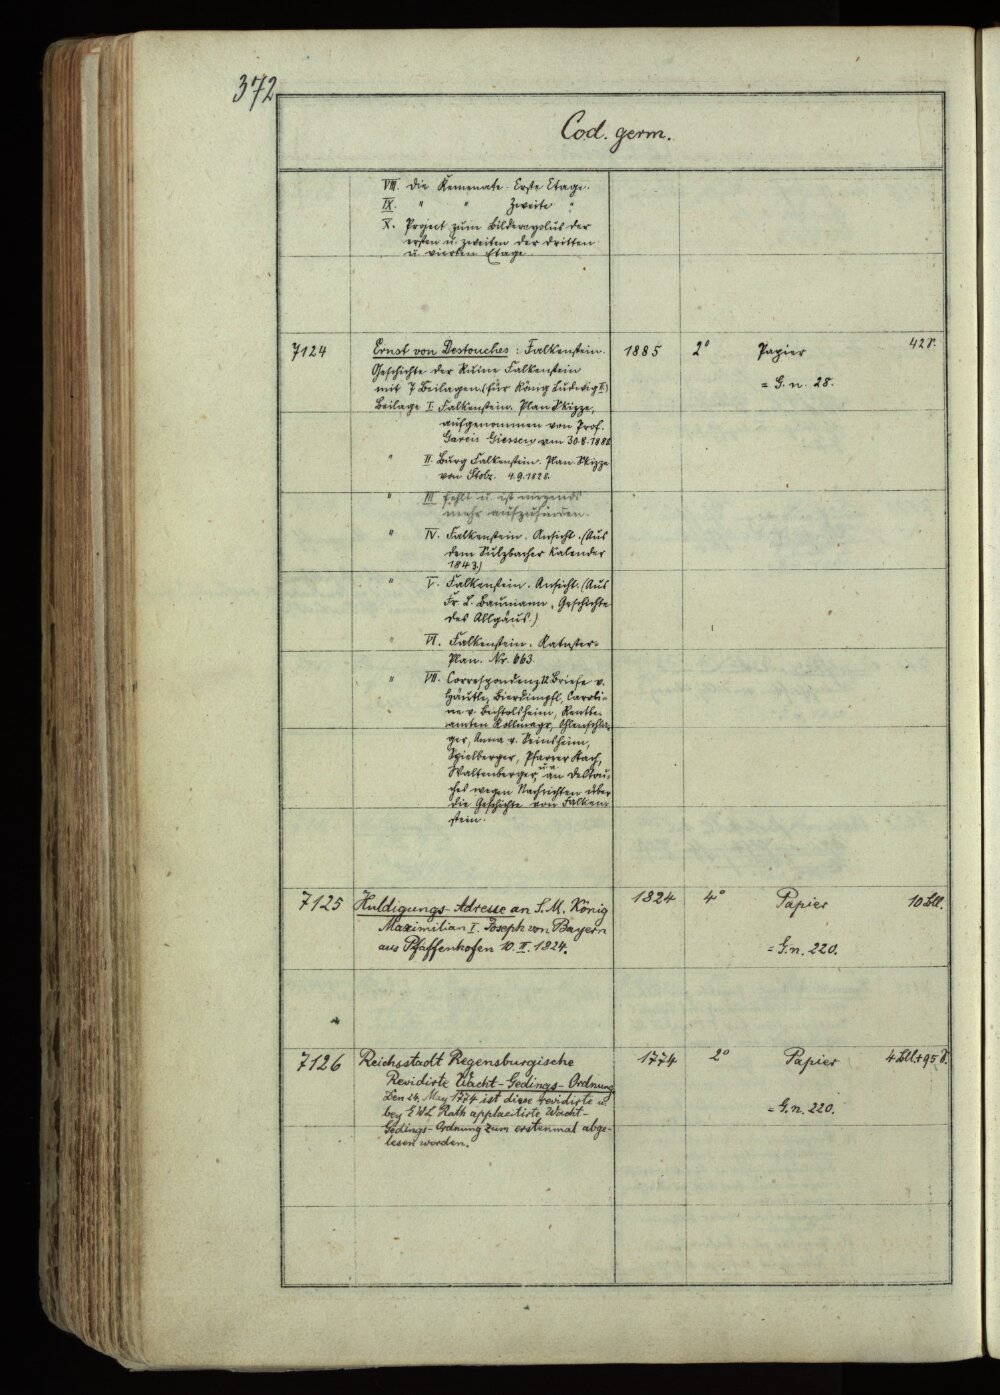 372
Cod. germ.
VIII. Die Kemenate. Erste Etage.
IX. " " Zweite "
X. Project zum Bildercyclus der
ersten u. zweiten der dritten
u. vierten Etage.
7124 Ernst von Destouches: Falkenstein. 1885 2° Papier 42 S.
Geschichte der Ruine Falkenstein
mit 7 Beilagen (für König Ludwig II) = G. n. 28.
Beilage I. Falkenstein. Plan Skizze,
aufgenommen von Prof.
Gareis Giessen am 30.8.
" II. Burg Falkenstein. Plan Skizze
von Stolz. 4.9.
" III fehlt u. ist nirgends
mehr aufzufinden.
" IV. Falkenstein. Ansicht. (Aus
dem Sulzbacher Kalender
1843)
" V. Falkenstein. Ansicht. (Aus
Fr. L. Baumann, Geschichte
des Allgäus.)
" VI. Falkenstein. Kataster-
Plan. Nr. 663.
" VII. Correspondenz 12 Briefe v.
Häutle, Bierdimpfl, Caroli-
ne v. Bechtolsheim, Rentbe-
amten Kollmayr, Ohlenschla-
ger, Anna v. Seinsheim,
Spielberger, Pfarrer
Waltenberger, u.a. an Destou-
ches wegen Nachrichten über
die Geschichte von Falken-
stein.
7125 Huldigungs-Adresse an S. M. König 1824 4° Papier 10 Bll.
Maximilian I. Joseph von Bayern
aus Pfaffenhofen 10. II. 1824. = G. n. 220.
7126 Reichsstadt Regensburgische 1774 2° Papier 4 Bll + 95 S.
Revidirte Wacht-Gedings-Ordnung
Den 24. May 1774 ist diese revidirte u.
bey E W L Rath applacitirte Wacht- = G. n. 220.
Gedings-Ordnung zum erstenmal abge-
lesen worden.